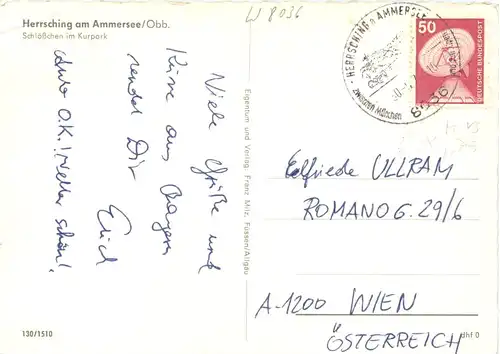 Herrsching am Ammersee/Obb.
Schlößchen im Kurpark
W 8036
Viele Grüße und
Küsse aus Bayern
sendet Dir
Erich
Auto O.K.! Wetter schön!
Eigentum und Verlag: Franz Milz, Füssen/Allgäu
HERRSCHING a AMMERSEE
zwischen München
8036
50
DEUTSCHE BUNDESPOST
Elfriede ULLRAM
ROMANOG. 29/6
A-1200 WIEN
ÖSTERREICH
130/1510
dhf 0